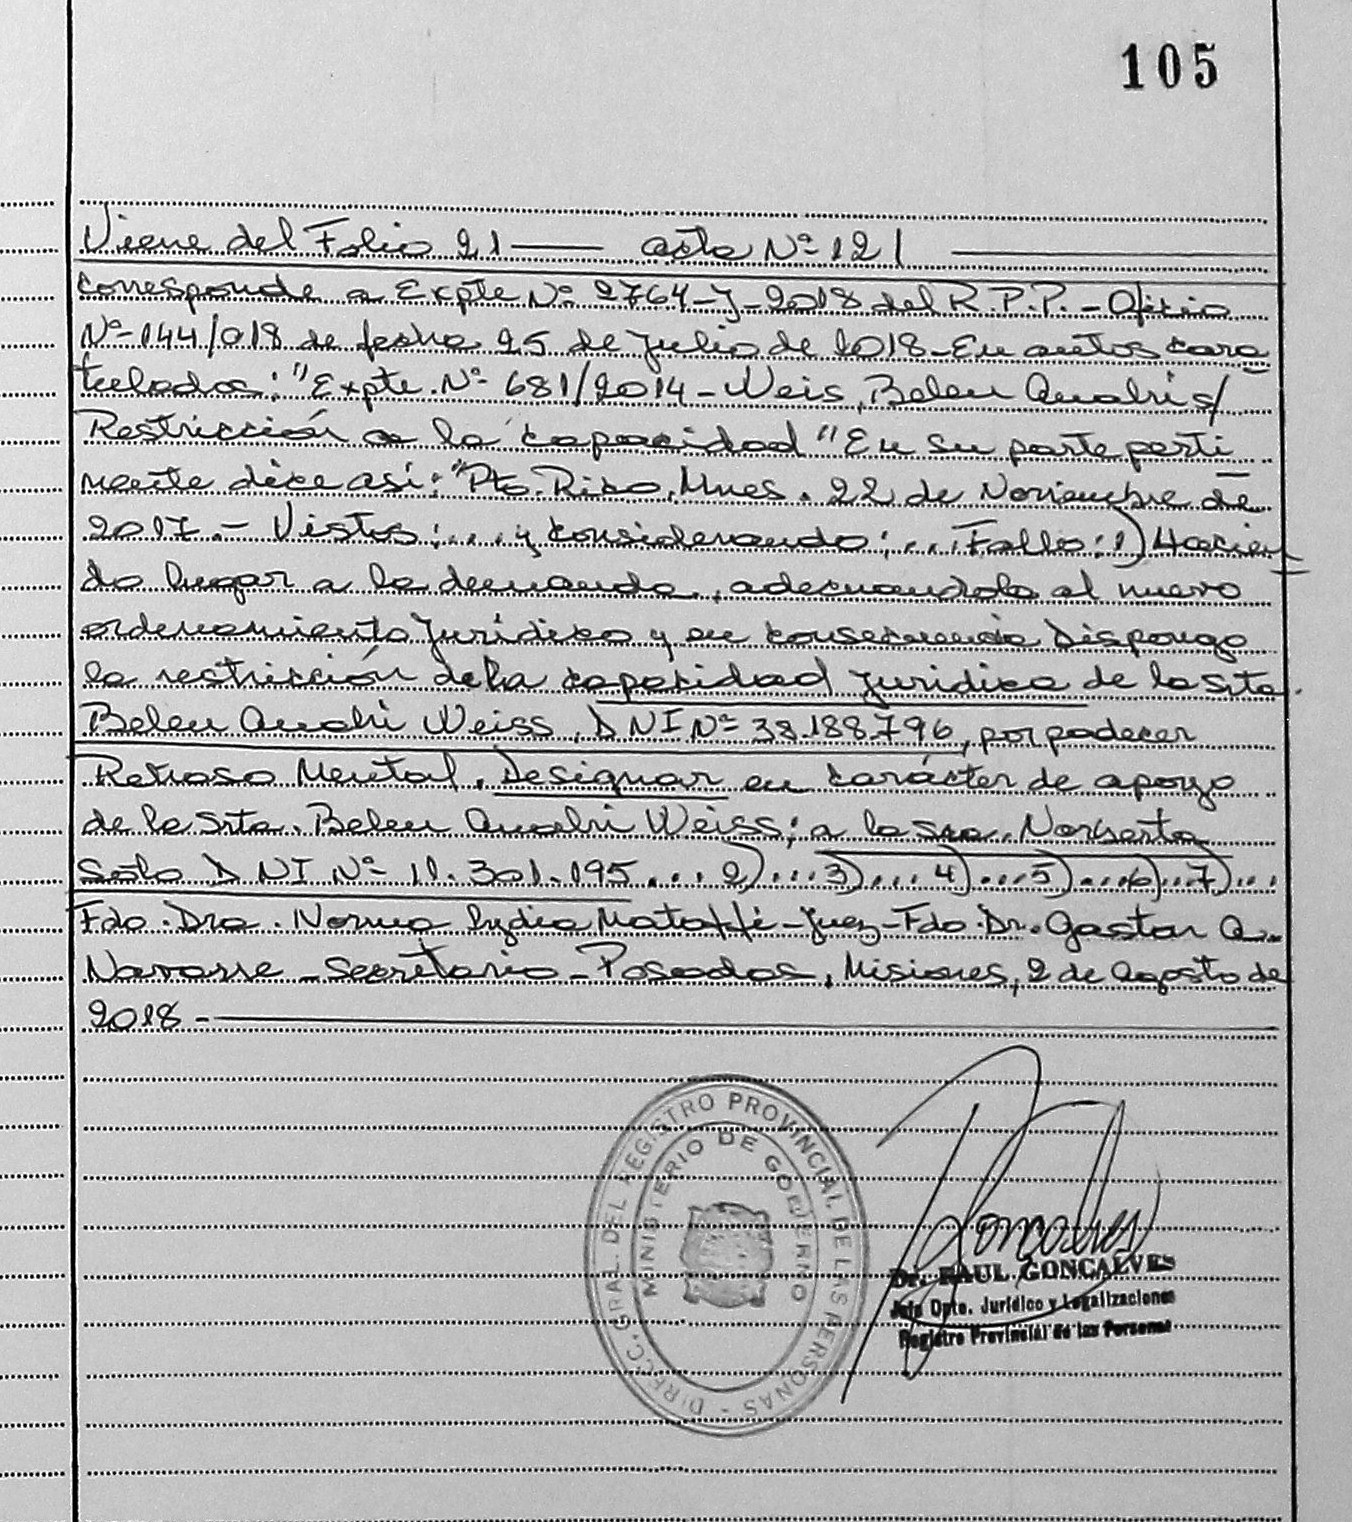 105
Viene del Folio 21 —— acta Nº 121 ——
corresponde a Expte Nº 2764-J-2018 del R.P.P. - Oficio
Nº 144/018 de fecha 25 de Julio de 2018 - En autos cara
tulados: "Expte. Nº 681/2014 - Weis, Belen Anahi s/
Restricción a la capacidad" En su parte perti
nente dice así: "Pto. Rico, Mnes. 22 de Noviembre de
2017. - Vistos: .... y considerando: ... Fallo: 1) Hacien
do lugar a la demanda, adecuandola al nuevo
ordenamiento Jurídico y en consecuencia Dispongo
la restricción de la capacidad Juridica de la Srta.
Belen Anahi Weiss, DNI Nº 38.188.796, por padecer
Retraso Mental. Designar en carácter de apoyo
de la Srta. Belen Anahi Weiss; a la Sra. Norberta
Soto DNI Nº 11.301.195 ... 2) ... 3) ... 4) ... 5) ... 6) ... 7) ...
Fdo. Dra. Norma Lydia Mataffi - Juez - Fdo. Dr. Gastar A.
Navarre - Secretario - Posadas, Misiones, 2 de agosto de
2018 - ——
DIRECC. GRAL. DEL REGISTRO PROVINCIAL DE LAS PERSONAS -
MINISTERIO DE GOBIERNO
Dr. RAUL GONCALVES
Jefe Dpto. Jurídico y Legalizaciones
Registro Provincial de las Personas